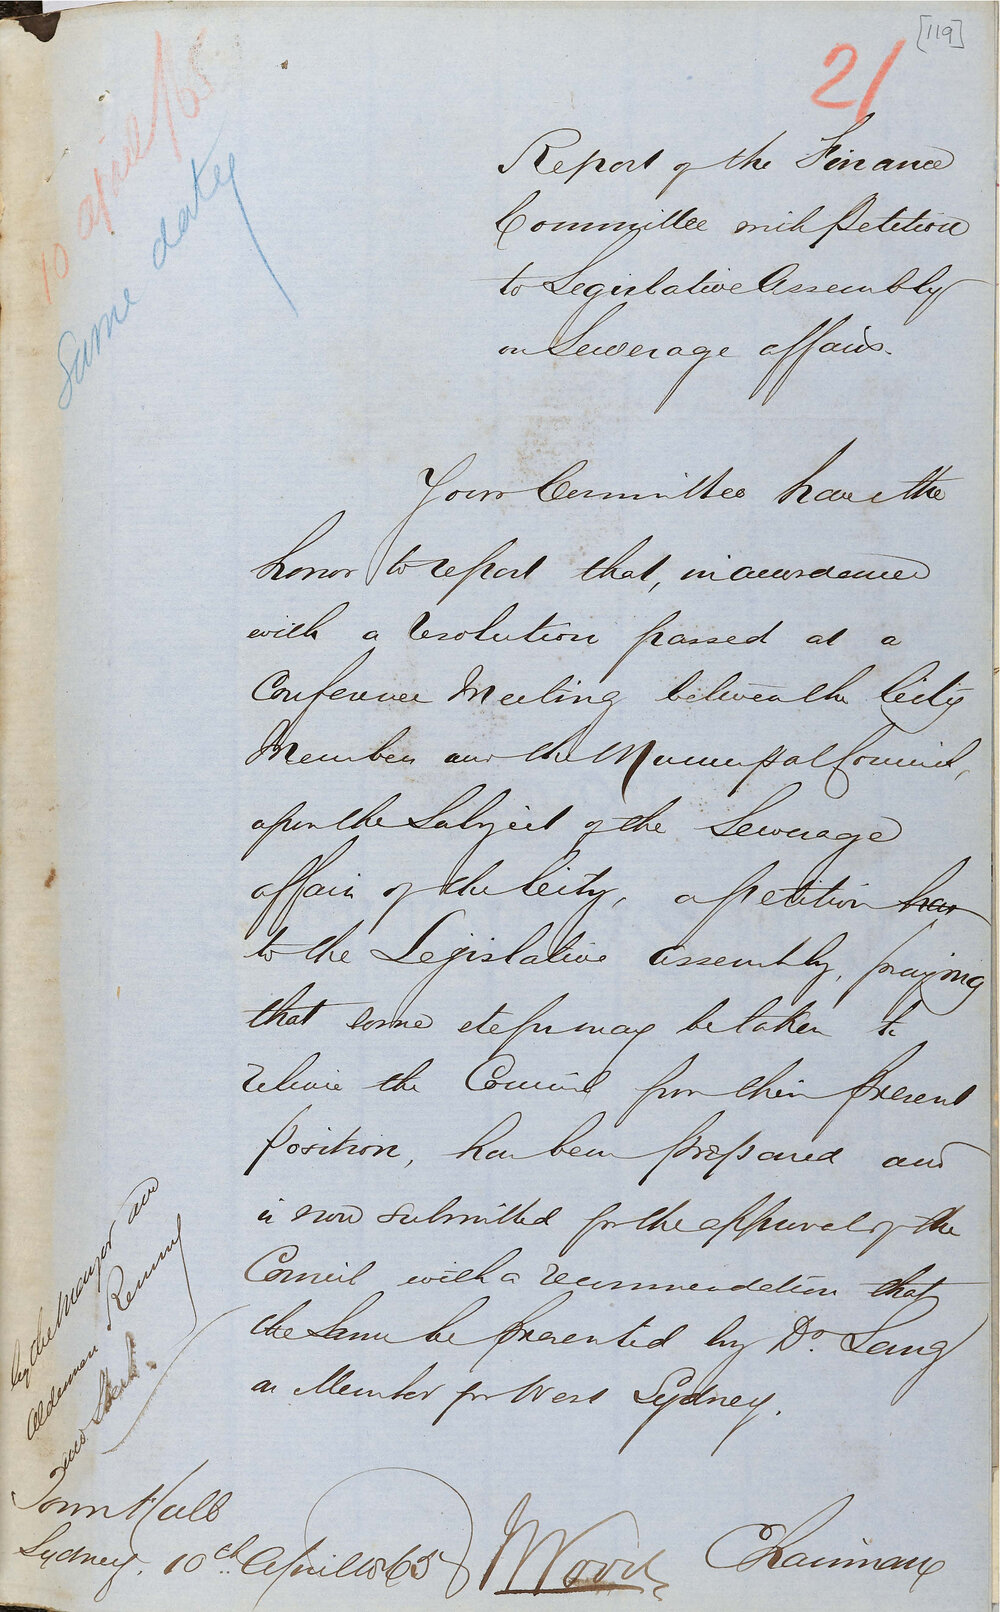 [119]
21
10 april/65
Same date
Report of the Finance
Committee with Petition
to Legislative Assembly
on Sewerage affairs.
Your Committee have the
honor to report that, in accordance
with a resolution passed at a
Conference Meeting between the City
Members and the Municipal Council,
upon the Subject of the Sewerage
affairs of the City, a petition has
to the Legislative assembly, praying
that some steps may be taken to
relieve the Council from their present
position, has been prepared and
is now submitted for the approval of the
Council with a recommendation that
the same be presented by Dr. Lang
as Member for West Sydney.
by the Mayor and
Alderman
Town Hall
Sydney. 10th April 1865
Wood Chairman